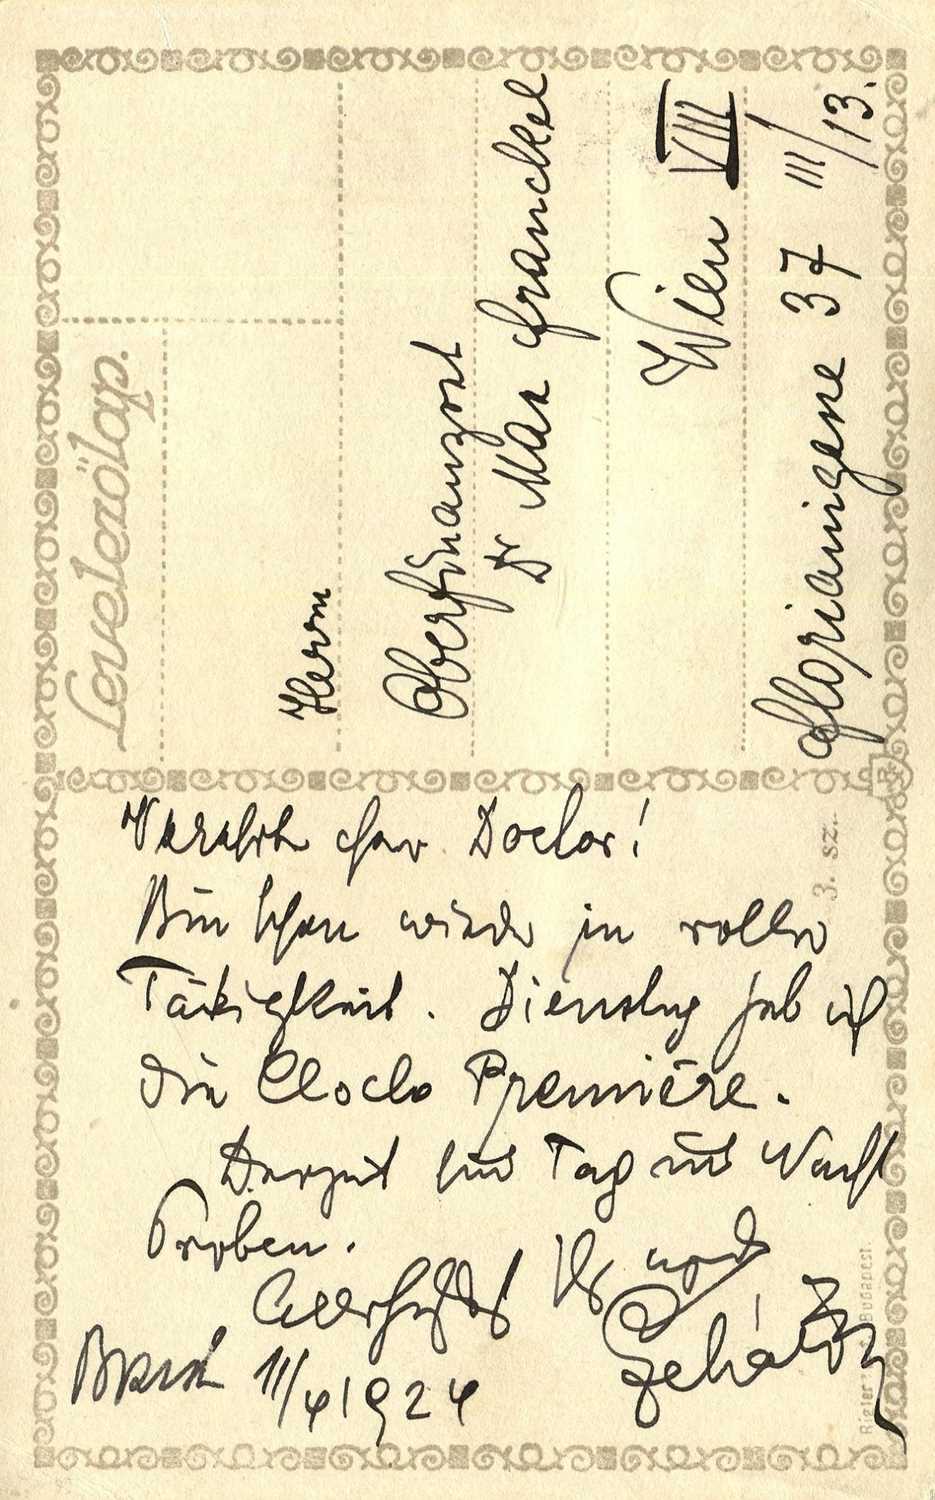 Levelezőlap.
Herrn
Oberfinanzrat
Dr Max Franckel
Wien VIII
Florianigasse 37 III/13.
Verehrter Herr Doctor!
Bin schon wieder in voller
Tätigkeit. Dienstag hab ich
die Cloclo Première.
Derzeit sind Tag und Nacht
Proben.
Allerherzlichst Ihr
Lehár
11/4 1924
3. sz.
Rigler Budapest.